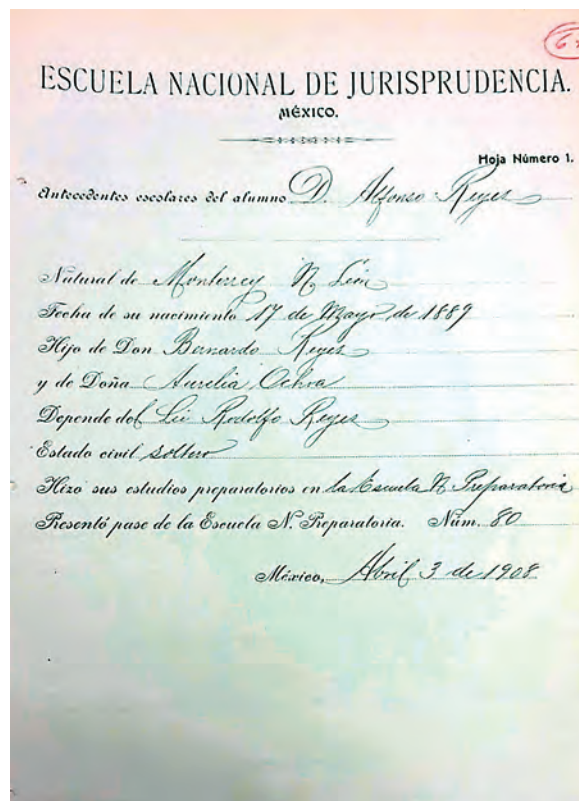 ESCUELA NACIONAL DE JURISPRUDENCIA.
MÉXICO.
Hoja Número 1.
Antecedentes escolares del alumno D. Alfonso Reyes
Natural de Monterrey N. León
Fecha de su nacimiento 17 de Mayo de 1889
Hijo de Don Bernardo Reyes
y de Doña Aurelia Ochoa
Depende del Lic Rodolfo Reyes
Estado civil soltero
Hizo sus estudios preparatorios en la Escuela N. Preparatoria
Presentó pase de la Escuela N. Preparatoria. Núm. 80
México, Abril 3 de 1908